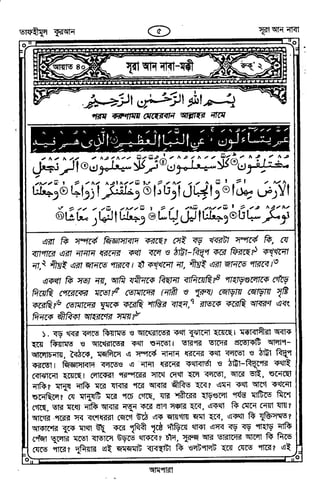 তাফহীমুল কুরআন
৫
সূরা আন নাবা
আয়াত ৪০
সূরা আন নাবা-মক্কী
রুকূ ২
بِسْمِ اللهِ الرَّحْمٰنِ الرَّحِيْمِ
পরম করুণাময় মেহেরবান আল্লাহর নামে
عَمَّ يَتَسَاءَلُونَ ۝ عَنِ النَّبَإِ الْعَظِيمِ ۝ الَّذِي هُمْ فِيهِ
مُخْتَلِفُونَ ۝ كَلَّا سَيَعْلَمُونَ ۝ ثُمَّ كَلَّا سَيَعْلَمُونَ ۝ أَلَمْ نَجْعَلِ
الْأَرْضَ مِهٰدًا ۝ وَّالْجِبَالَ أَوْتَادًا ۝ وَّخَلَقْنٰكُمْ أَزْوَاجًا ۝ وَّجَعَلْنَا
نَوْمَكُمْ سُبَاتًا ۝ وَّجَعَلْنَا الَّيْلَ لِبَاسًا ۝ وَّجَعَلْنَا النَّهَارَ مَعَاشًا ۝
এরা কি সম্পর্কে জিজ্ঞাসাবাদ করছে? সেই বড় খবরটা সম্পর্কে কি, যে
ব্যাপারে এরা নানান ধরনের কথা বলে ও ঠাট্টা-বিদ্রূপ করে ফিরছে? কখ্খনো
না, শীঘ্রই এরা জানতে পারবে। হাঁ কখ্খনো না, শীঘ্রই এরা জানতে পারবে।
একথা কি সত্য নয়, আমি যমীনকে বিছানা বানিয়েছি? পাহাড়গুলোকে গেঁড়ে
দিয়েছি পেরেকের মতো? তোমাদের (নারী ও পুরুষ) জোড়ায় জোড়ায় সৃষ্টি
করেছি? তোমাদের ঘুমকে করেছি শান্তির বাহন, রাতকে করেছি আবরণ এবং
দিনকে জীবিকা আহরণের সময়?
১. বড় খবর বলতে কিয়ামত ও আখেরাতের কথা বুঝানো হয়েছে। মক্কাবাসীরা অবাক
হয়ে কিয়ামত ও আখেরাতের কথা শুনতো। তারপর তাদের প্রত্যেকটি আলাপ-
আলোচনায়, বৈঠকে, মজলিসে এ সম্পর্কে নানান ধরনের কথা বলতো ও ঠাট্টা বিদ্রূপ
করতো। জিজ্ঞাসাবাদ বলতেও এ নানা ধরনের কথাবার্তা ও ঠাট্টা-বিদ্রূপের কথাই
বোঝানো হয়েছে। লোকেরা পরস্পরের সাথে দেখা হলে বলতো, আরে ভাই, শুনেছো
নাকি? মানুষ নাকি মরে যাবার পরে আবার জীবিত হবে? এমন কথা আগে কখনো
শুনেছিলে? যে মানুষটি মরে পচে গেছে, যার শরীরের হাড়গুলো পর্যন্ত মাটিতে মিশে
গেছে, তার মধ্যে নাকি আবার নতুন করে প্রাণ সঞ্চার হবে, একথা কি মেনে নেয়া যায়?
আগের পরের সব বংশধররা জেগে উঠে এক জায়গায় জমা হবে, একথা কি যুক্তিসম্মত?
আকাশের বুকে মাথা উঁচু করে পৃথিবী পৃষ্ঠে দাঁড়িয়ে থাকা এসব বড় বড় পাহাড় নাকি
পেঁজা তুলোর মতো বাতাসে উড়তে থাকবে? চাঁদ, সুরুজ আর তারাদের আলো কি নিভে
যেতে পারে? দুনিয়ার এই জমজমাট ব্যবস্থাটা কি ওলটপালট হয়ে যেতে পারে? এই
আমপারা